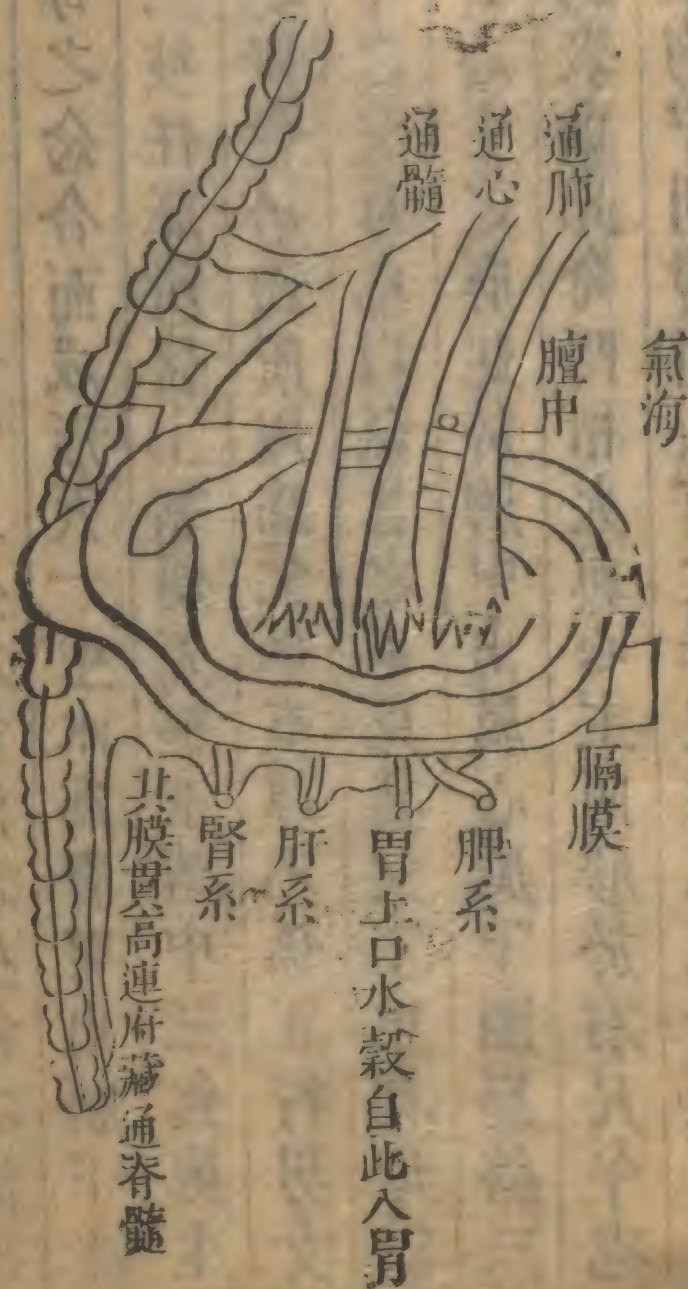 氣海
膻中
通肺
通心
通髓
膈膜
脾系
胃上口水穀自此入胃
肝系
腎系
其膜貫膏連府藏通脊髓